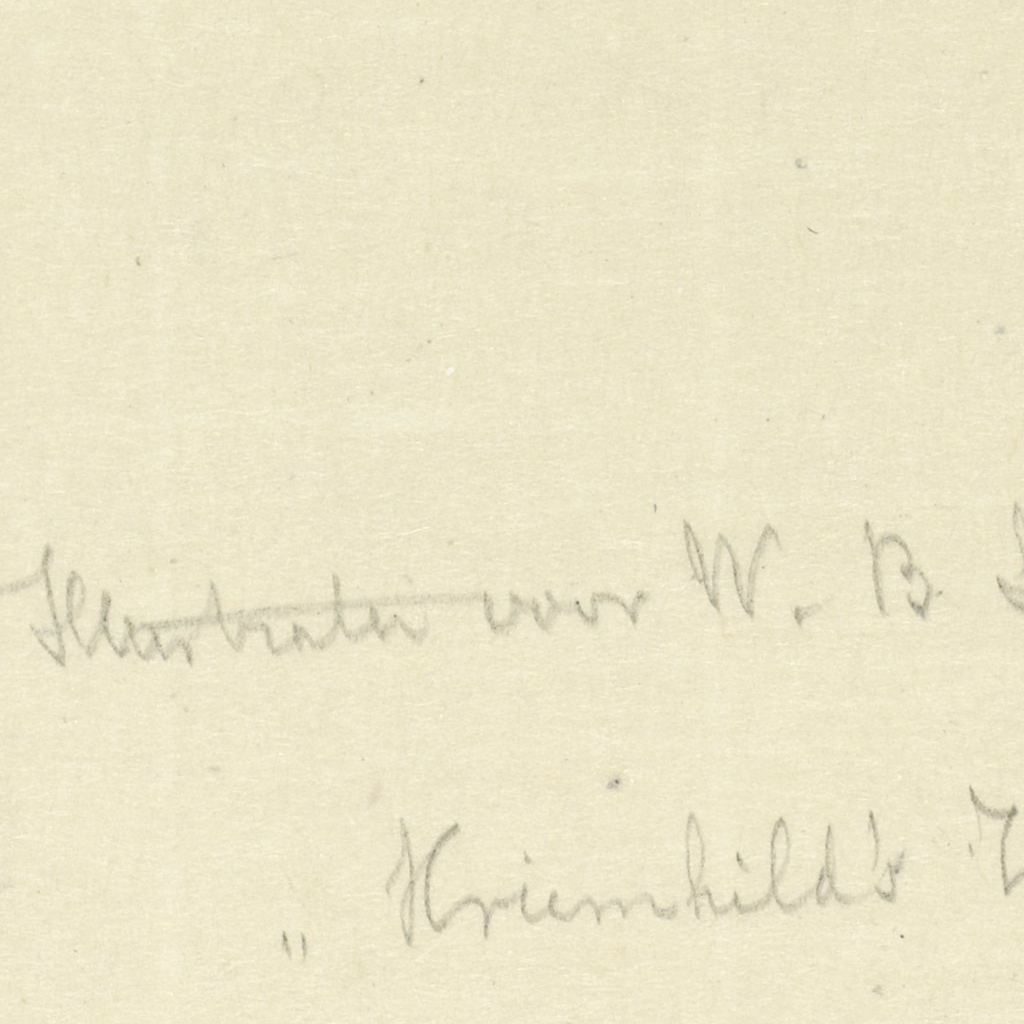 Illustratie voor W. B.
„ Kriemhild's